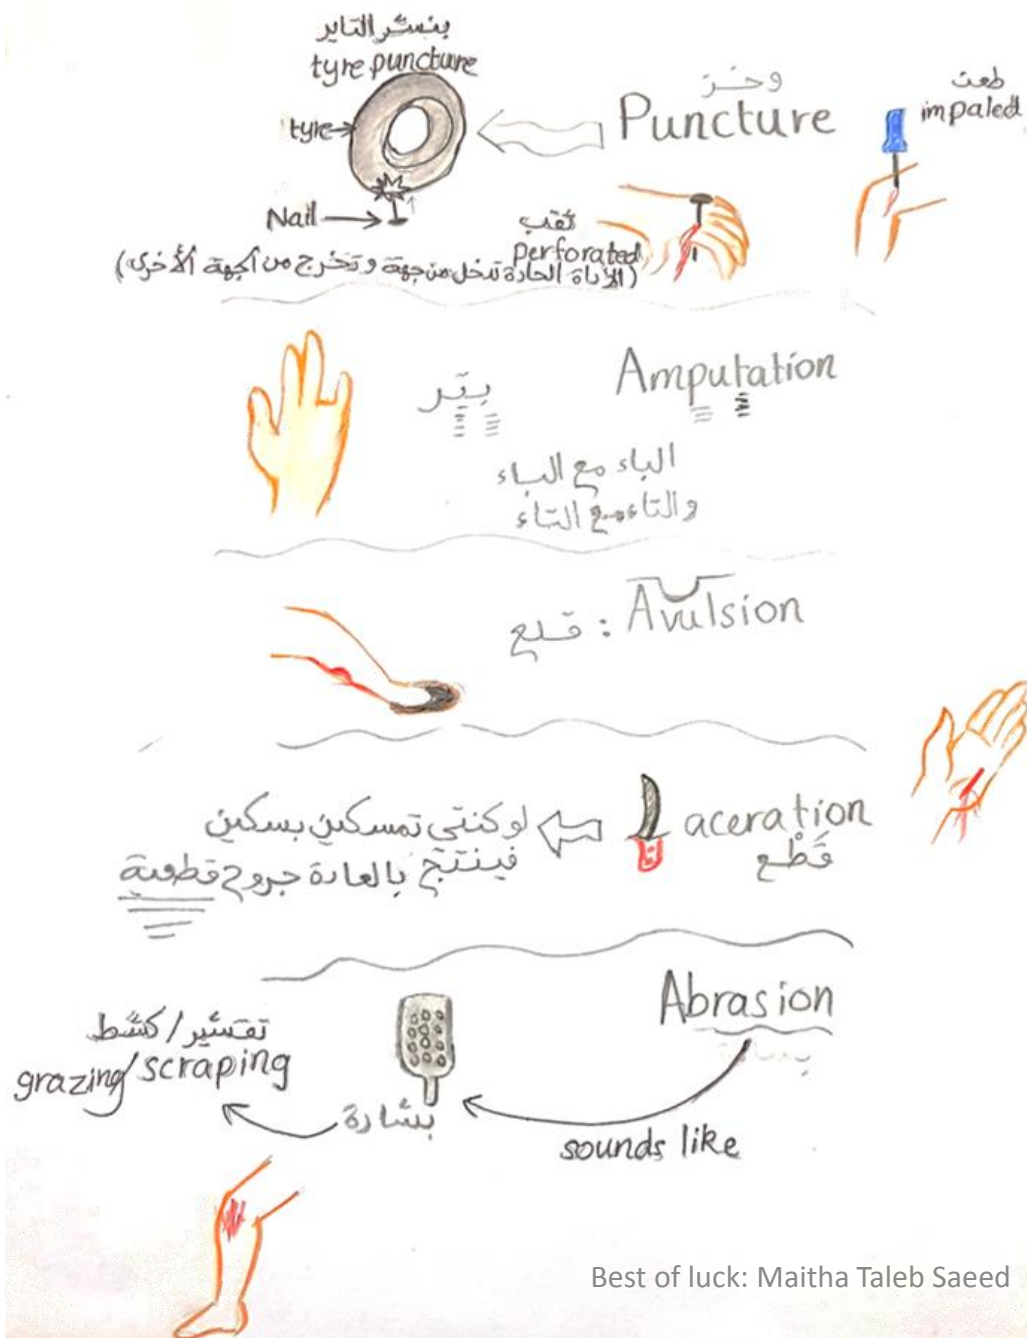 بنشر التاير
tyre puncture
tyre
Nail
وخز
Puncture
طعن
impaled
ثقب
perforated
(الأداة الحادة تدخل من جهة وتخرج من الجهة الأخرى)
Amputation
بتر
الباء مع الباء
والتاء مع التاء
Avulsion : قلع
aceration
قَطْع
لو كنتي تمسكين بسكين
فينتج بالعادة جروح قطعية
Abrasion
بشارة
sounds like
بشارة
تقشير/كشط
grazing/scraping
Best of luck: Maitha Taleb Saeed